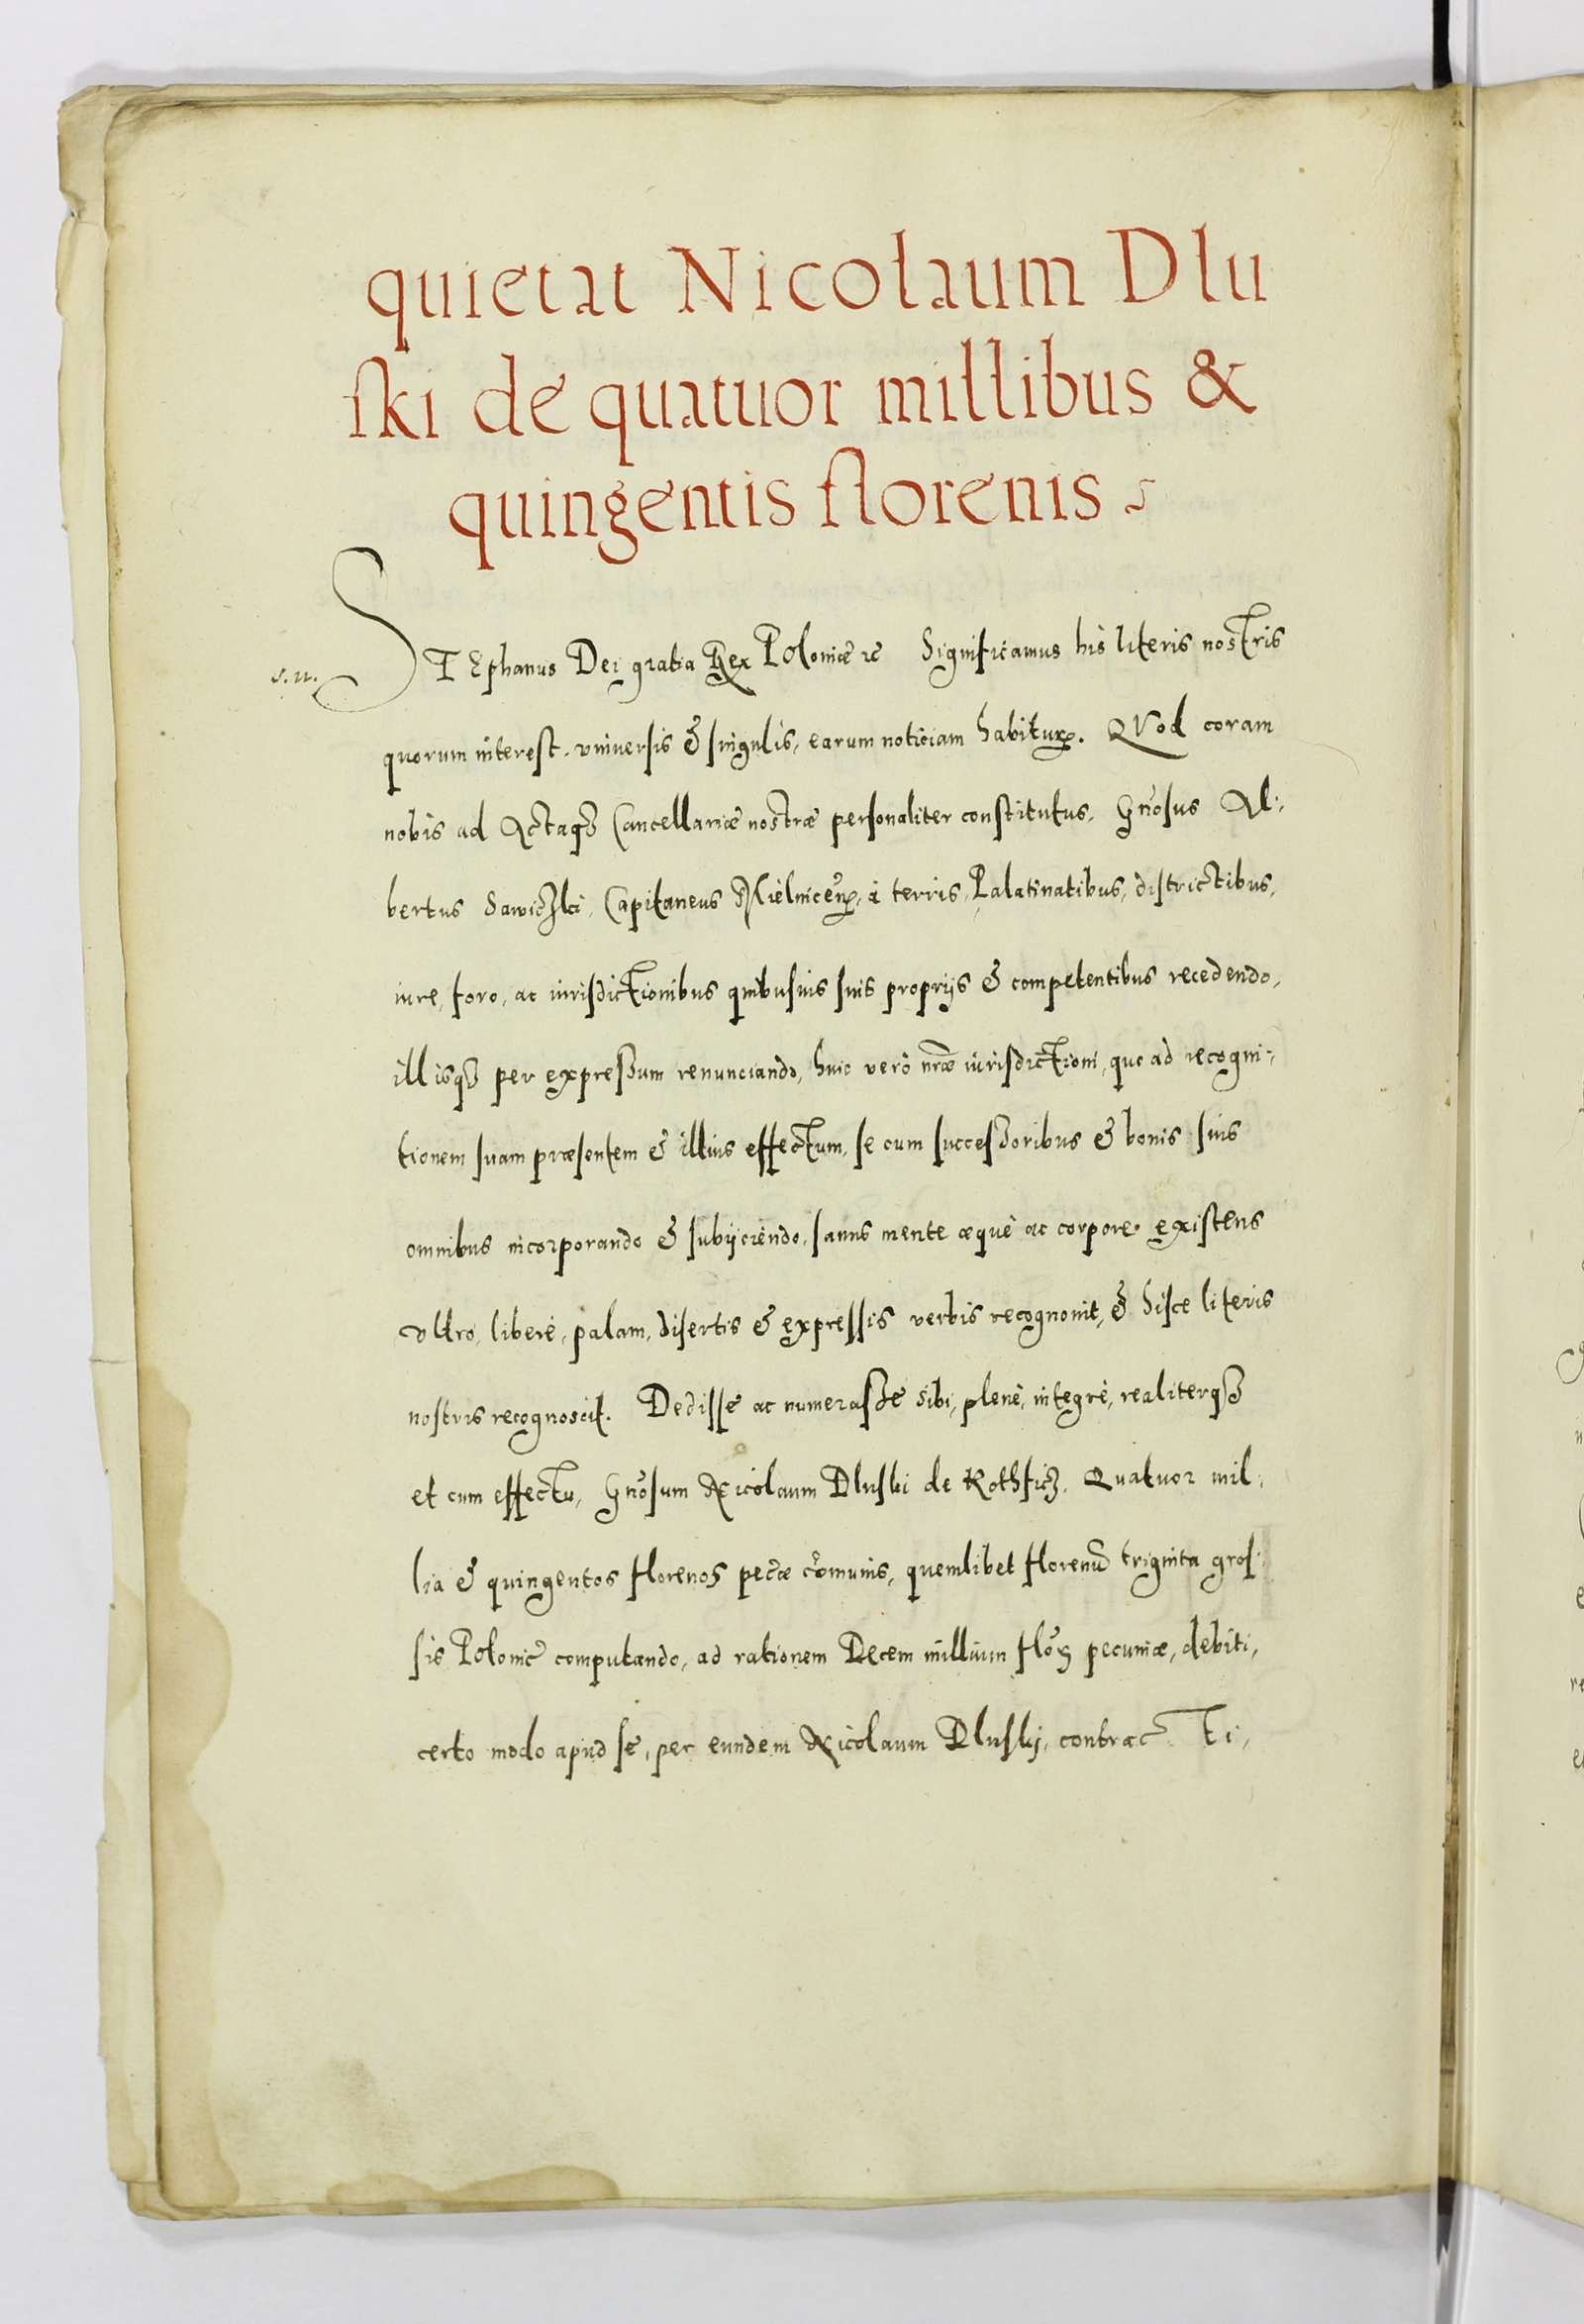 quietat Nicolaum Dlu
ſki de quatuor millibus &
quingentis florenis
s. n.
STEphanus Dei gratia Rex Poloniæ ꝛc Significamus his literis nostris
quorum interest, vniuersis & singulis, earum noticiam habituꝝ. QVod coram
nobis ad Actaqꝫ Cancellariæ nostræ personaliter constitutus, Gn̄osus Al-
bertus Sawiczki, Capitaneus Mielniceñ, à terris, Palatinatibus, districtibus,
iure, foro, ac iurisdictionibus quibusuis suis proprijs & competentibus recedendo,
illisqꝫ per expressum renunciando, huic verò nr̄æ iurisdictioni, quo ad recogni-
tionem suam præsentem & illius effectum, se cum successoribus & bonis suis
omnibus incorporando & subijciendo, sanus mente æquè ac corpore existens
vltro, liberè, palam, disertis & expressis verbis recognouit, & hisce literis
nostris recognoscit. Dedisse ac numerasse sibi, plenè, integrè, realiterqꝫ
et cum effectu, Gn̄osum Nicolaum Dluski de Quatuor mil-
lia & quingentos florenos pec̄æ cōmunis, quemlibet florenū triginta gros-
sis Polonic̄ computando, ad rationem Decem millium flo᷑ꝝ pecuniæ, debiti,
certo modo apud se, per eundem Nicolaum Dluskj, contracti,